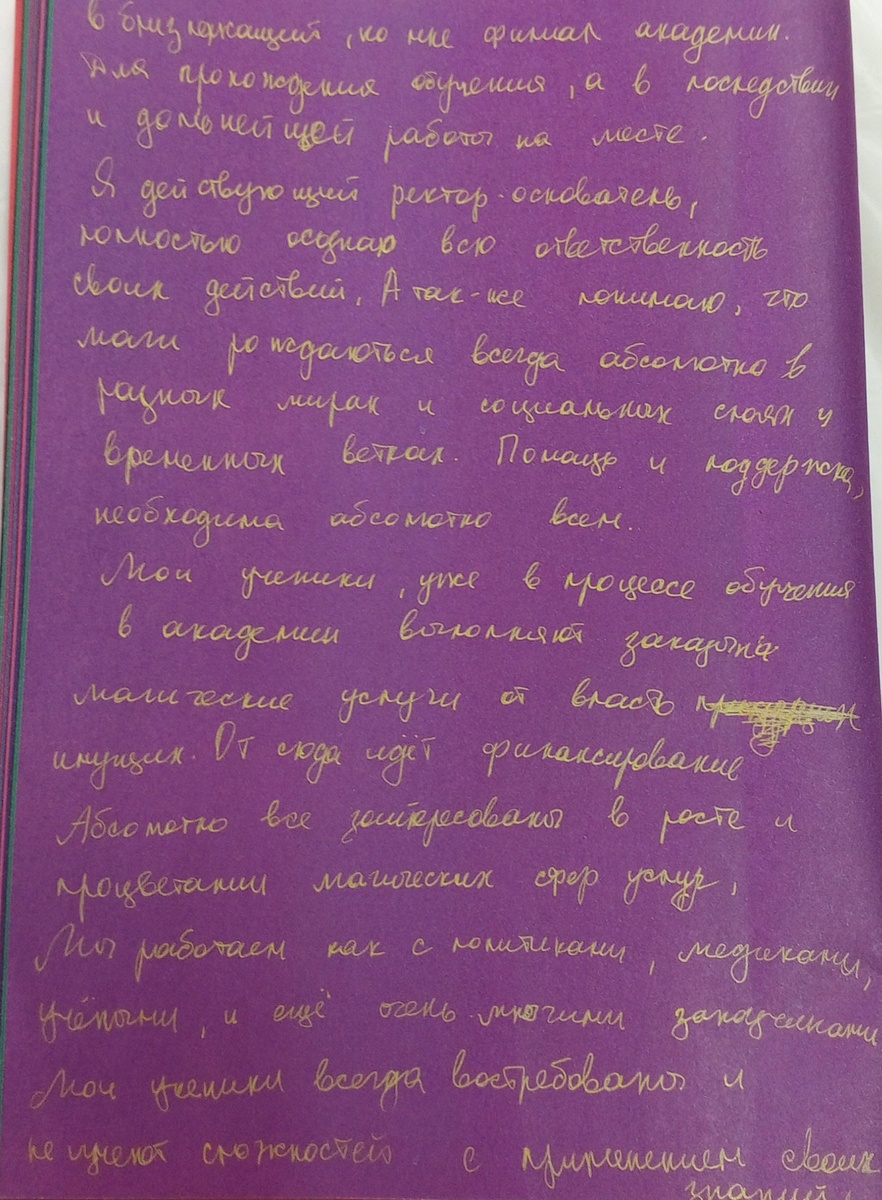 в близлежащей, ко мне филиал академии.
Для прохождения обучения, а в последствии
и дальнейшей работы на месте.
Я действующий ректор-основатель,
полностью осознаю всю ответственность
своих действий. А так-же понимаю, что
маги рождаються всегда абсолютно в
разных мирах и социальных слоях и
временных ветках. Помощь и поддержка,
необходима абсолютно всем.
Мои ученики, уже в процессе обучения
в академии выполняют заказы на
магические услуги от власть
имущих. От сюда идёт финансирование
Абсолютно все заинтересованы в росте и
процветании магических сфер услуг,
Мы работаем как с политиками, медиками,
учёными, и ещё очень многими заказчиками
Мои ученики всегда востребованы и
не имеют сложностей с применением своих
знаний